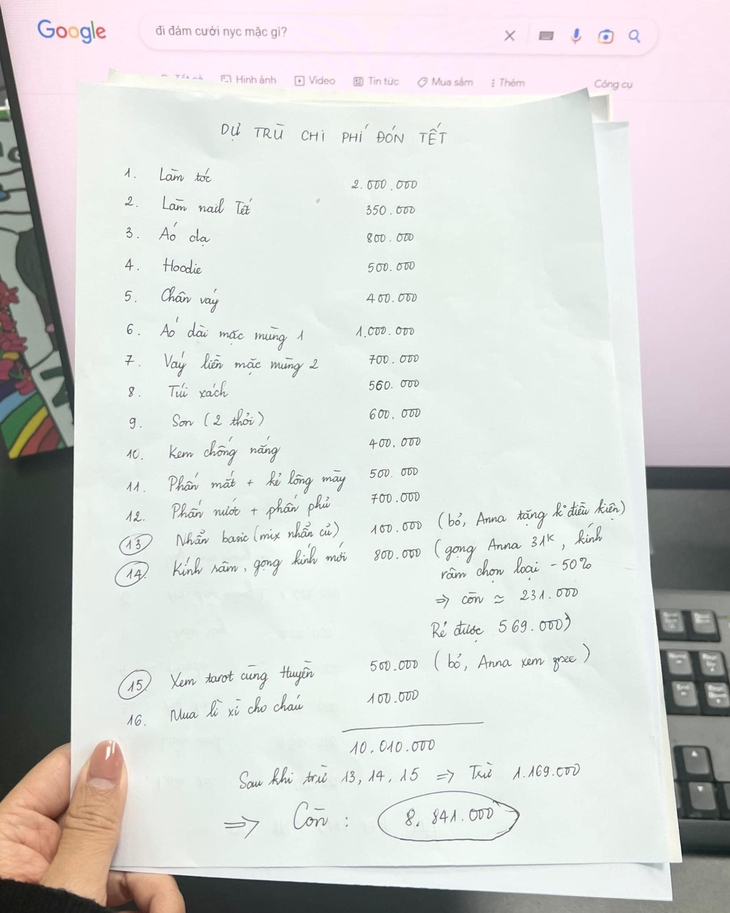 Google
đi đám cưới nyc mặc gì?
Hình ảnh Video Tin tức Mua sắm Thêm Công cụ
DỰ TRÙ CHI PHÍ ĐÓN TẾT
1. Làm tóc 2.000.000
2. Làm nail Tết 350.000
3. Áo dạ 800.000
4. Hoodie 500.000
5. Chân váy 400.000
6. Áo dài mặc mùng 1 1.000.000
7. Váy liền mặc mùng 2 700.000
8. Túi xách 560.000
9. Son (2 thỏi) 600.000
10. Kem chống nắng 400.000
11. Phấn mắt + kẻ lông mày 500.000
12. Phấn nước + phấn phủ 700.000
13 Nhẫn basic (mix nhẫn cũ) 100.000 (bỏ, Anna tặng k điều kiện)
14. Kính râm, gọng kính mới 800.000 (gọng Anna 31k, kính
râm chọn loại -50%
⇒ còn ≈ 231.000
Rẻ được 569.000)
15 Xem tarot cùng Huyền 500.000 (bỏ, Anna xem free)
16. Mua lì xì cho cháu 100.000
10.010.000
Sau khi trừ 13, 14, 15 ⇒ Trừ 1.169.000
⇒ Còn : 8.841.000